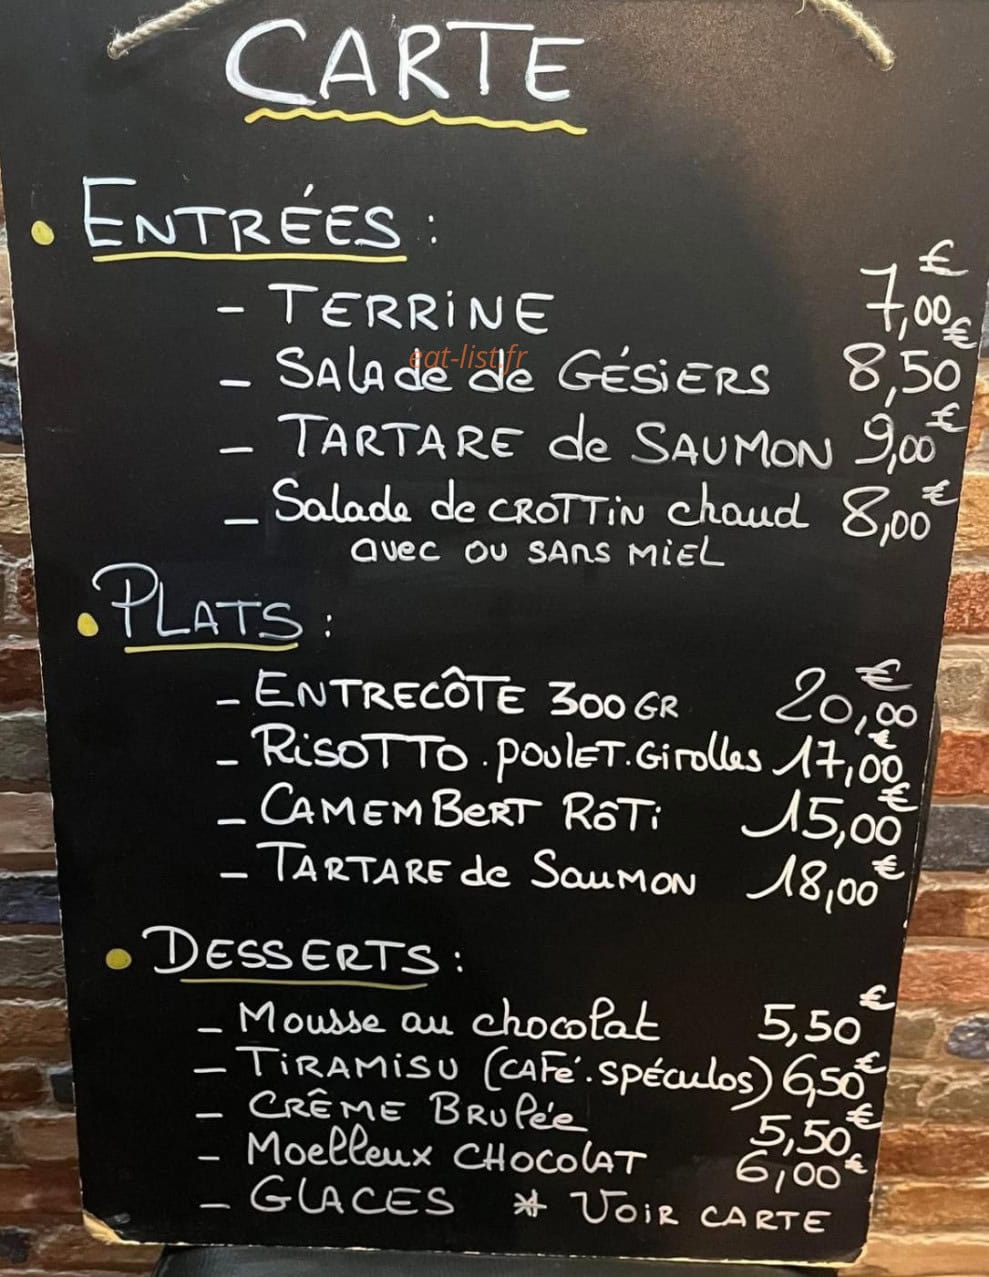 CARTE
ENTRÉES :
- TERRINE 7,00€
eat-list.fr
- SALADE de GÉSIERS 8,50€
- TARTARE de SAUMON 9,00€
- Salade de CROTTIN chaud 8,00€
avec ou SANS MIEL
PLATS :
- ENTRECÔTE 300 GR 20,00€
- RISOTTO . POULET . Girolles 17,00€
- CAMEMBERT RÔTI 15,00€
- TARTARE de SAUMON 18,00€
DESSERTS :
- Mousse au chocolat 5,50€
- TIRAMISU (CAFÉ . SPÉCULOS) 6,50€
- CRÊME BRULÉE 5,50€
- Moelleux CHOCOLAT 6,00€
- GLACES * VOIR CARTE